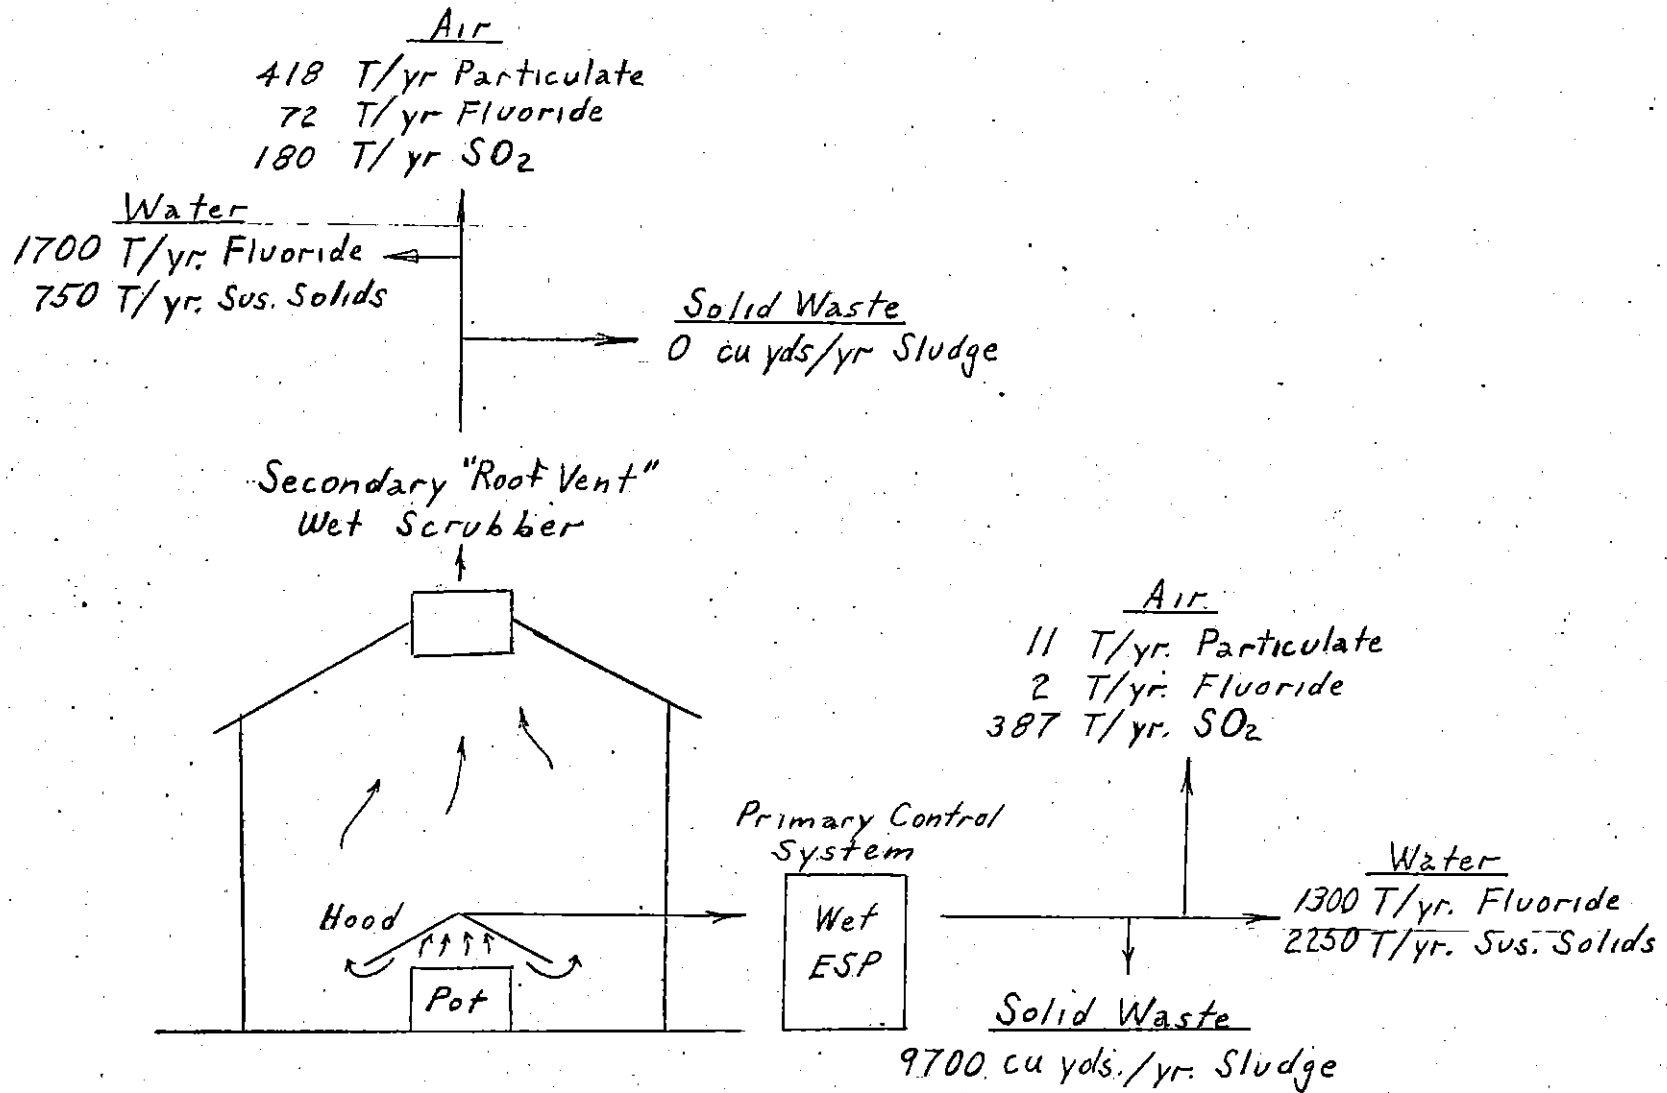 Air
418 T/yr Particulate
72 T/yr Fluoride
180 T/yr SO2
Water
1700 T/yr. Fluoride
750 T/yr. Sus. Solids
Solid Waste
0 cu yds/yr Sludge
Secondary "Roof Vent"
Wet Scrubber
Air
11 T/yr. Particulate
2 T/yr. Fluoride
387 T/yr. SO2
Primary Control
System
Water
1300 T/yr. Fluoride
2250 T/yr. Sus. Solids
Hood
Wet
ESP
Pot
Solid Waste
9700 cu yds./yr. Sludge